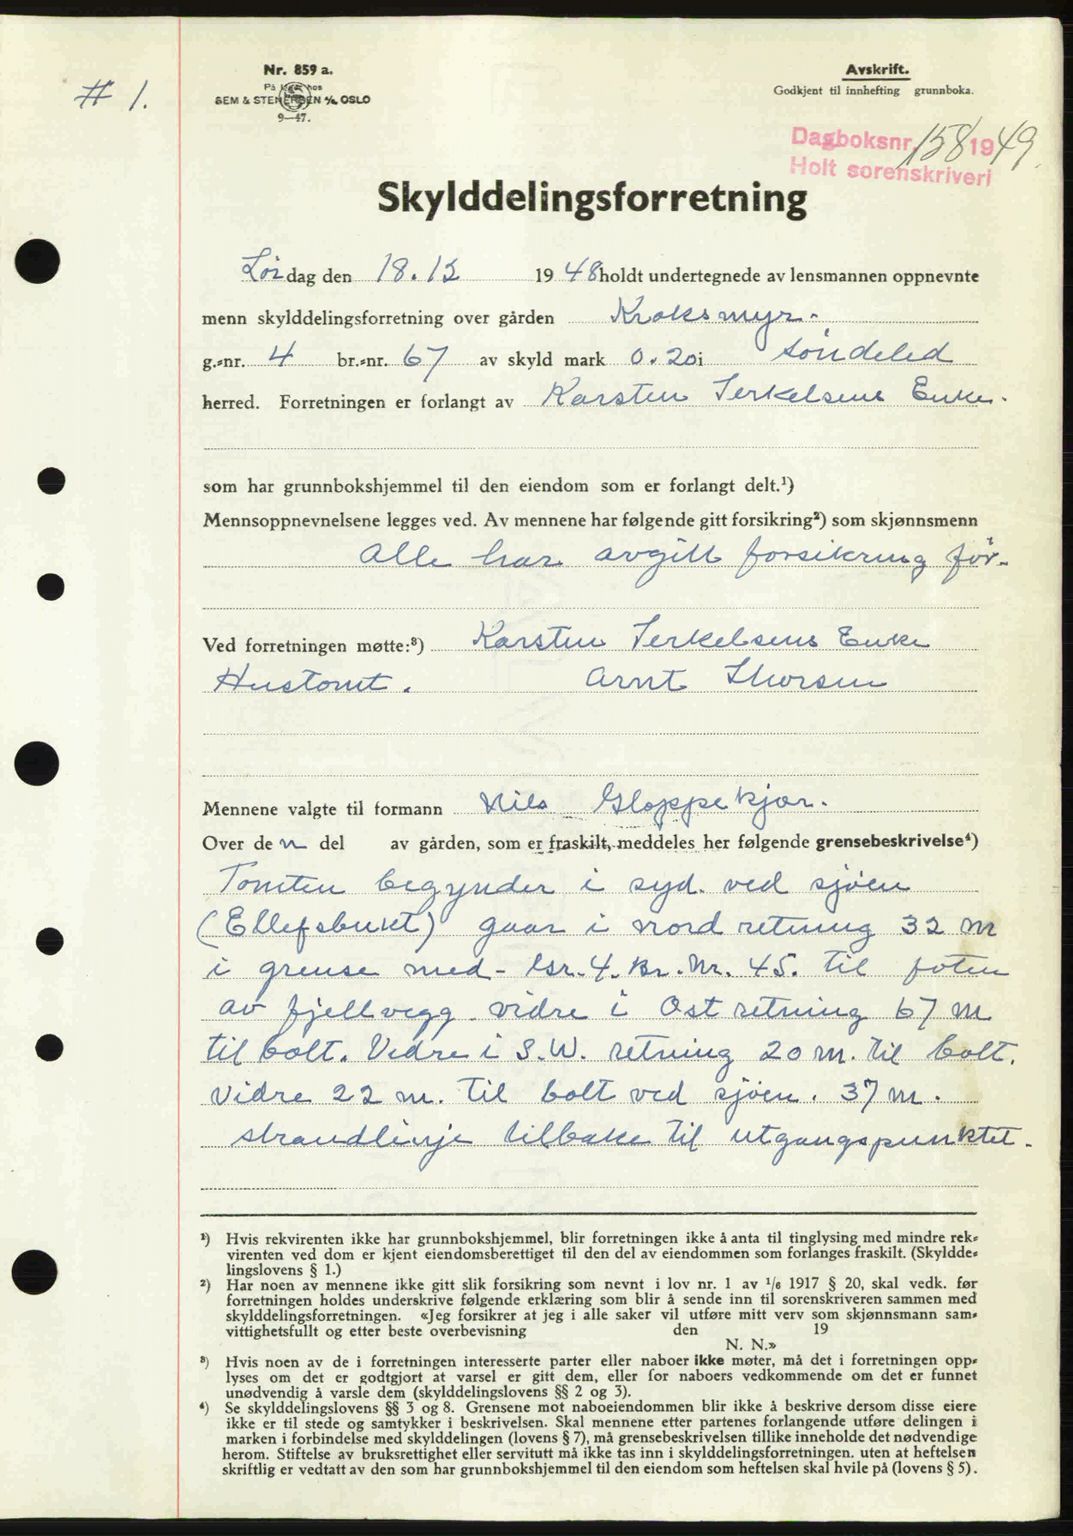 # 1.
Nr. 859 a.
På lager hos
SEM & STENERSEN A/S OSLO
9—47.
Avskrift.
Godkjent til innhefting grunnboka.
Dagboksnr. 158 1949.
Holt sorenskriveri
Skylddelingsforretning
Lördag den 18.12 1948 holdt undertegnede av lensmannen oppnevnte
menn skylddelingsforretning over gården Kroksmyr.
g.-nr. 4 br.-nr. 67 av skyld mark 0.20 i Söndeled
herred. Forretningen er forlangt av Karsten Terkelsens Enke.
som har grunnbokshjemmel til den eiendom som er forlangt delt.¹)
Mennsoppnevnelsene legges ved. Av mennene har følgende gitt forsikring²) som skjønnsmenn
Alle har avgitt forsikring før.
Ved forretningen møtte:³) Karsten Terkelsens Enke
Hustomt. Arnt Thorsen
Mennene valgte til formann Nils Gloppekjær.
Over den del av gården, som er fraskilt, meddeles her følgende grensebeskrivelse⁴)
Tomten begynder i syd. ved sjøen
(Ellefsbukt) gaar i nord retning 32 m
i grense med Gr. 4. Br. Nr. 45. til foten
av fjellvegg vidre i Ost retning 67 m
til bolt. Vidre i S.W. retning 20 m. til bolt.
Vidre 22 m. til bolt ved sjøen. 37 m.
strandlinje tilbake til utgangspunktet.
¹) Hvis rekvirenten ikke har grunnbokshjemmel, blir forretningen ikke å anta til tinglysing med mindre rek-
virenten ved dom er kjent eiendomsberettiget til den del av eiendommen som forlanges fraskilt. (Skyldde-
lingslovens § 1.)
²) Har noen av mennene ikke gitt slik forsikring som nevnt i lov nr. 1 av 1/6 1917 § 20, skal vedk. før
forretningen holdes underskrive følgende erklæring som blir å sende inn til sorenskriveren sammen med
skylddelingsforretningen. «Jeg forsikrer at jeg i alle saker vil utføre mitt verv som skjønnsmann sam-
vittighetsfullt og etter beste overbevisning den 19
N. N.»
³) Hvis noen av de i forretningen interesserte parter eller naboer ikke møter, må det i forretningen opp-
lyses om det er godtgjort at varsel er gitt dem, eller for naboers vedkommende om det er funnet
unødvendig å varsle dem (skylddelingslovens §§ 2 og 3).
⁴) Se skylddelingslovens §§ 3 og 8. Grensene mot naboeiendommen blir ikke å beskrive dersom disse eiere
ikke er til stede og samtykker i beskrivelsen. Skal mennene etter partenes forlangende utføre delingen i
marken i forbindelse med skylddelingen (lovens § 7), må grensebeskrivelsen tillike inneholde det nødvendige
herom. Stiftelse av bruksrettighet eller servitutt må ikke tas inn i skylddelingsforretningen. uten at heftelsen
skriftlig er vedtatt av den som har grunnbokshjemmel til den eiendom som heftelsen skal hvile på (lovens § 5).